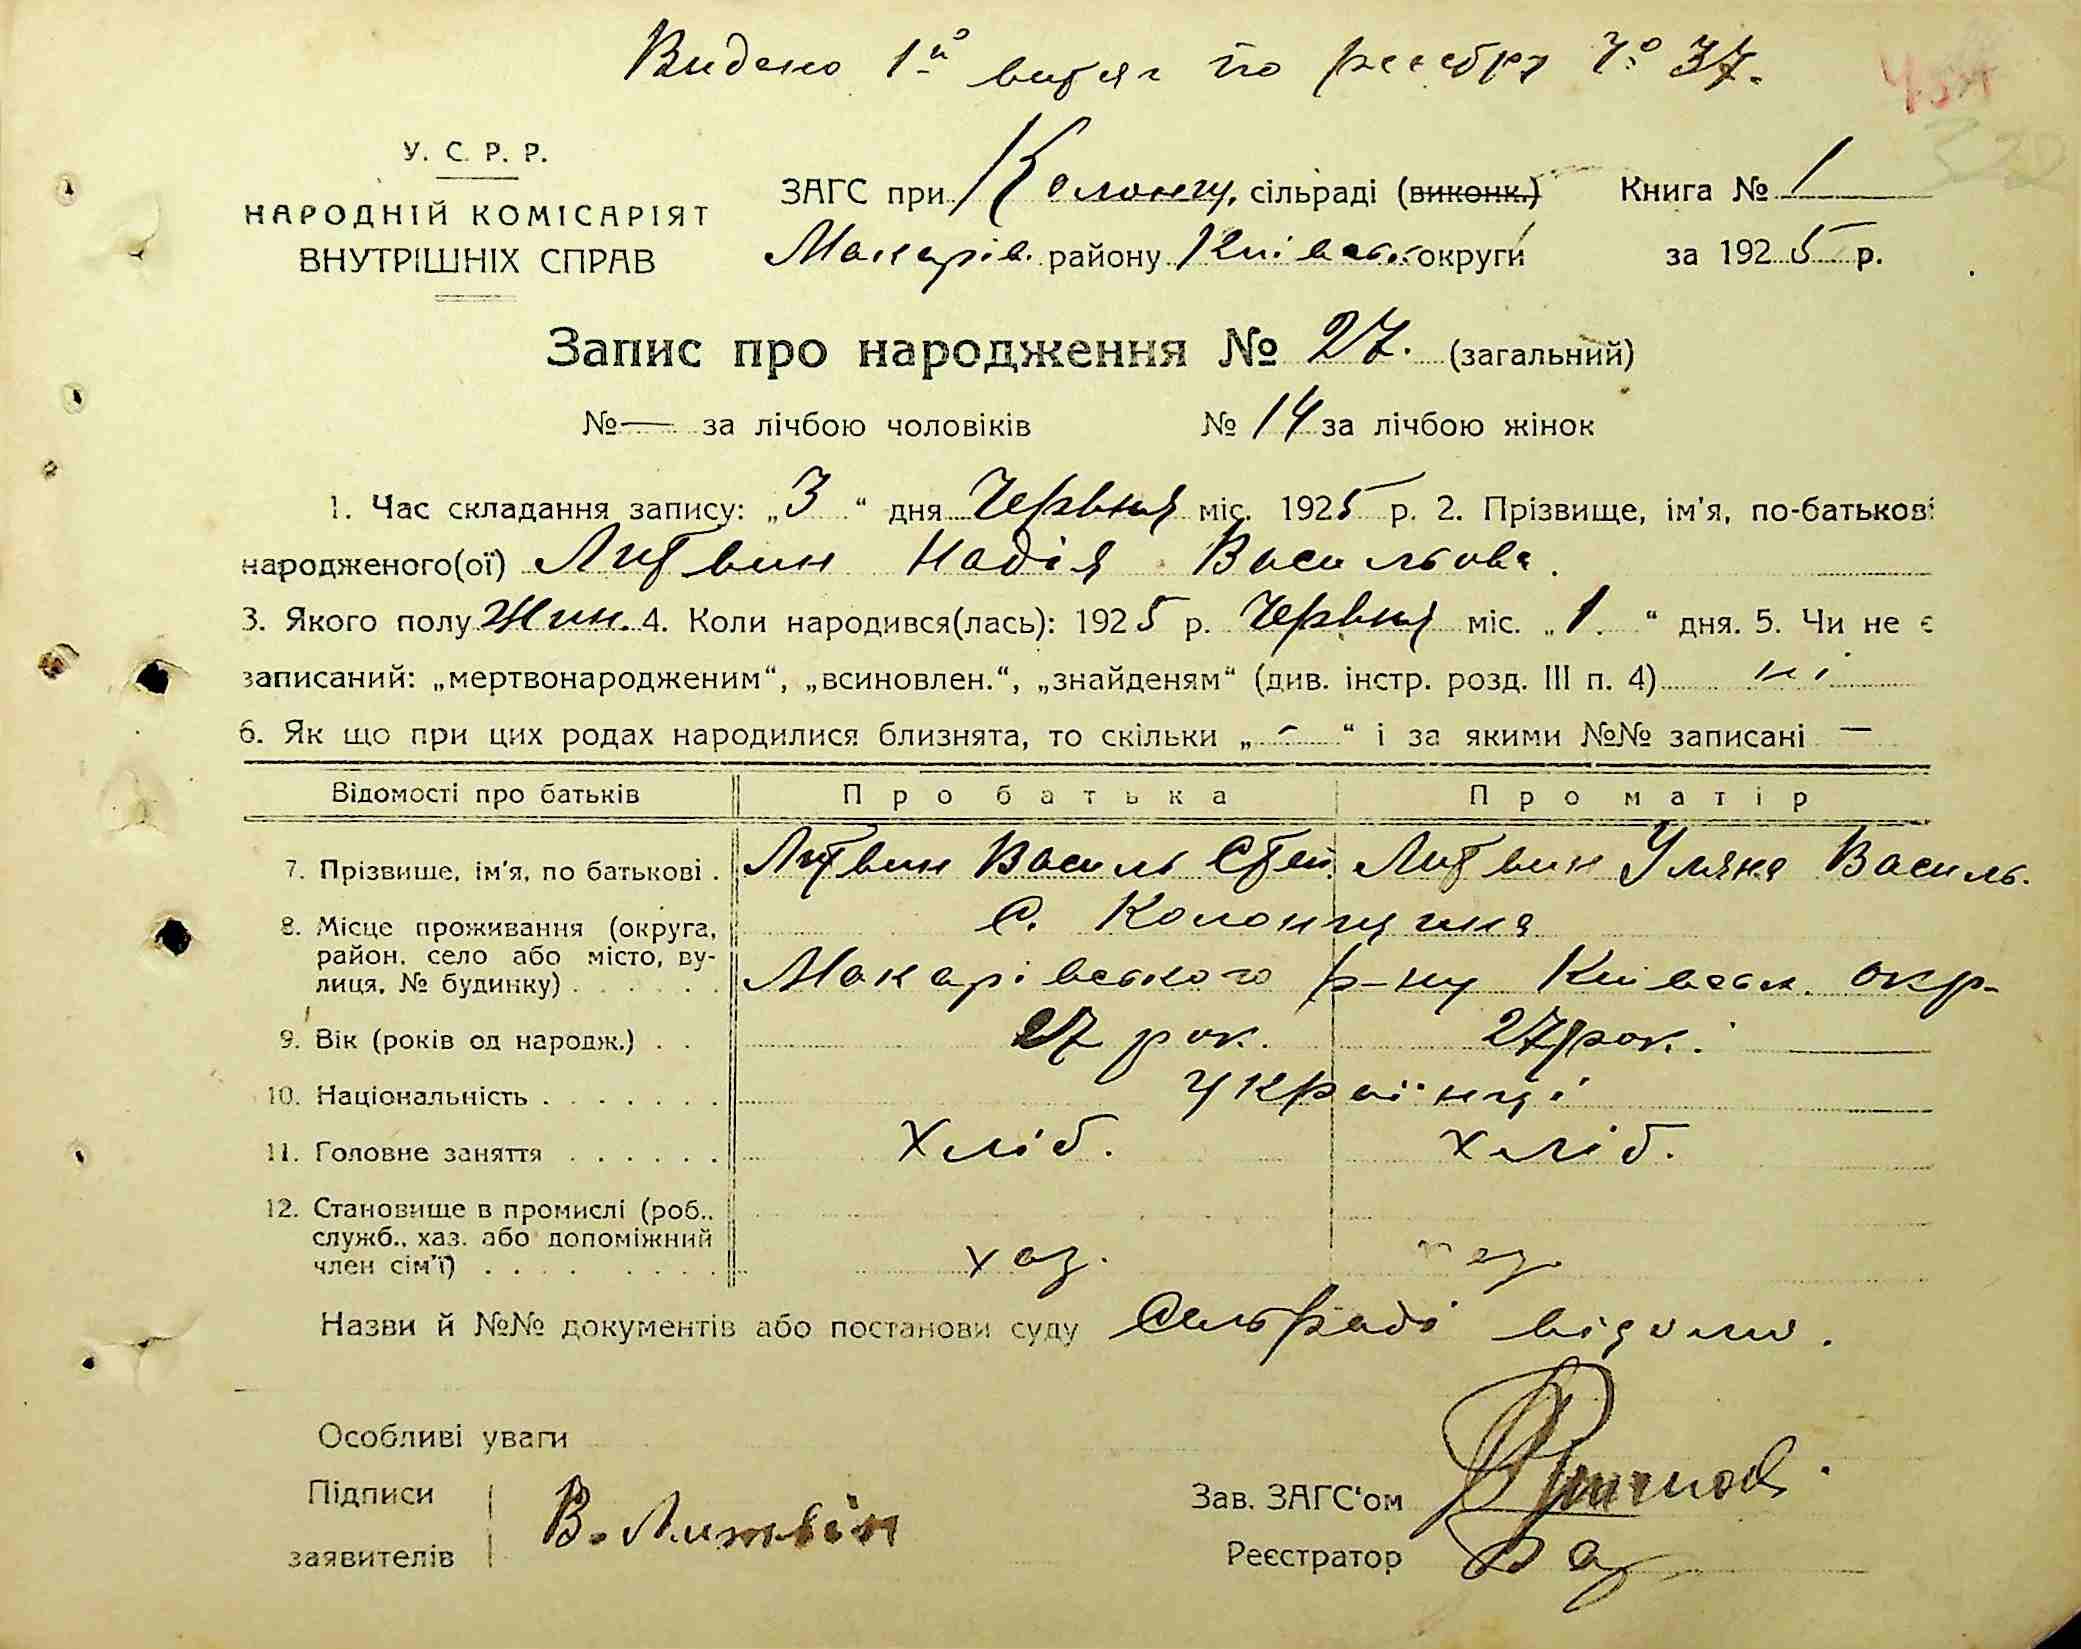 Видено 1й витяг по реєстру № 37.
У. С. Р. Р.
НАРОДНІЙ КОМІСАРІЯТ
ВНУТРІШНІХ СПРАВ
ЗАГС при Колонщ. сільраді (виконк.) Книга № 1
Макарів. району Київськ. округи за 1925 р.
Запис про народження № 27. (загальний)
№ — за лічбою чоловіків № 14 за лічбою жінок
1. Час складання запису: „3“ дня Червня міс. 1925 р. 2. Прізвище, ім'я, по-батькові
народженого(ої) Литвин Надія Васильова.
3. Якого полу Жин. 4. Коли народився(лась): 1925 р. Червня міс. „1.“ дня. 5. Чи не є
записаний: „мертвонародженим“, „всиновлен.“, „знайденям“ (див. інстр. розд. III п. 4) ні
6. Як що при цих родах народилися близнята, то скільки „-“ і за якими №№ записані —
Відомості про батьків Про батька Про матір
7. Прізвище, ім'я, по батькові . Литвин Василь Степ. Литвин Уляна Василь.
8. Місце проживання (округа, С. Колонщина
район, село або місто, ву-
лиця, № будинку) . . . . . . Макарівського р-ну Київськ. окр-
9. Вік (років од народж.) . . 27 рок. 27 рок.
10. Національність . . . . . . . українці
11. Головне заняття . . . . . . хліб. хліб.
12. Становище в промислі (роб.,
служб., хаз. або допоміжний
член сім'ї) . . . . . . . . хаз.
Назви й №№ документів або постанови суду Сельраді відомо.
Особливі уваги
Підписи
заявителів В. Литвін
Зав. ЗАГС'ом
Реєстратор